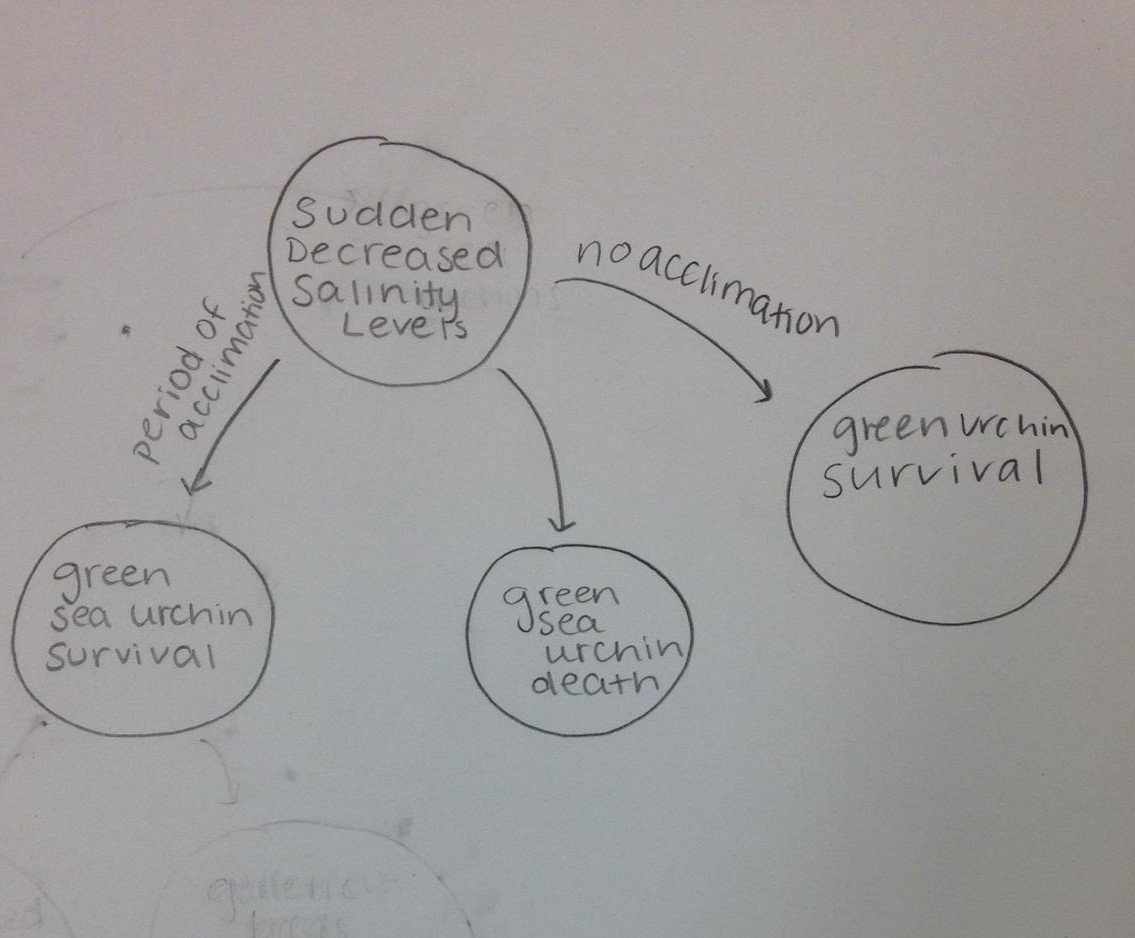 Sudden
Decreased
Salinity
Levels
period of
acclimation
no acclimation
green urchin
survival
green
sea urchin
survival
green
sea
urchin
death